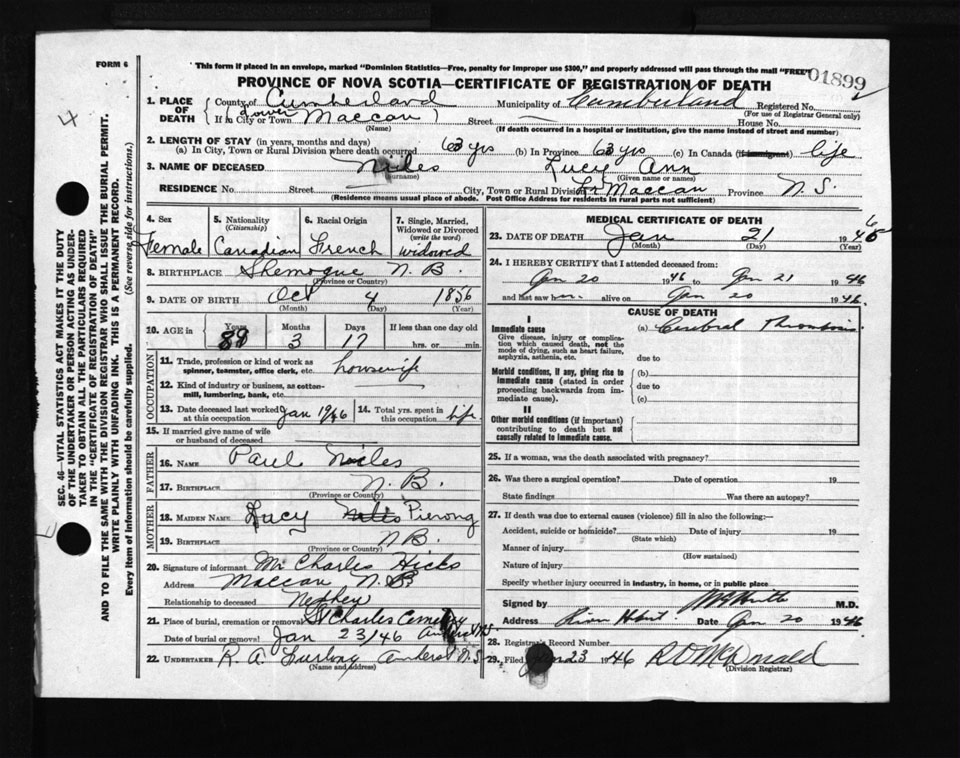 FORM 6
This form if placed in an envelope, marked "Dominion Statistics—Free, penalty for improper use $300," and properly addressed will pass through the mail "FREE"
01899
PROVINCE OF NOVA SCOTIA—CERTIFICATE OF REGISTRATION OF DEATH
1. PLACE OF DEATH
County of Cumberland Municipality of Cumberland Registered No.
(For use of Registrar General only)
If in City or Town Lower Maccan Street House No.
(Name) (If death occurred in a hospital or institution, give the name instead of street and number)
2. LENGTH OF STAY (in years, months and days)
(a) In City, Town or Rural Division where death occurred 63 yrs (b) In Province 63 yrs (c) In Canada (if immigrant) life
3. NAME OF DECEASED Niles Lucy Ann
(Surname) (Given name or names)
RESIDENCE No. Street City, Town or Rural Division Lr Maccan Province N. S.
(Residence means usual place of abode. Post Office Address for residents in rural parts not sufficient)
4. Sex Female
5. Nationality (Citizenship) Canadian
6. Racial Origin French
7. Single, Married, Widowed or Divorced (write the word) widowed
8. BIRTHPLACE Shemogue N. B.
(Province or Country)
9. DATE OF BIRTH Oct 4 1856
(Month) (Day) (Year)
10. AGE in Years Months Days If less than one day old
3 17 hrs. or min.
OCCUPATION
11. Trade, profession or kind of work as spinner, teamster, office clerk, etc. housewife
12. Kind of industry or business, as cotton-mill, lumbering, bank, etc.
13. Date deceased last worked at this occupation Jan 1946
14. Total yrs. spent in this occupation life
15. If married give name of wife or husband of deceased
FATHER
16. NAME Paul
17. BIRTHPLACE N. B.
(Province or Country)
MOTHER
18. MAIDEN NAME Lucy Niles Pierong
19. BIRTHPLACE N B.
(Province or Country)
20. Signature of informant Mr Charles Hicks
Address Maccan N.
Relationship to deceased Nephew
21. Place of burial, cremation or removal St Charles Cemetery Amherst N.S.
Date of burial or removal Jan 23/46
22. UNDERTAKER R. A. Furlong Amherst N.S.
(Name and address)
MEDICAL CERTIFICATE OF DEATH
23. DATE OF DEATH Jan 21 1946
(Month) (Day)
24. I HEREBY CERTIFY that I attended deceased from:
Jan 20 1946 to Jan 21 1946
and last saw her alive on Jan 20 1946.
CAUSE OF DEATH
I
Immediate cause
Give disease, injury or complication which caused death, not the mode of dying, such as heart failure, asphyxia, asthenia, etc.
(a) Cerebral Thrombosis
due to
Morbid conditions, if any, giving rise to immediate cause (stated in order proceeding backwards from immediate cause).
(b)
due to
(c)
II
Other morbid conditions (if important) contributing to death but not causally related to immediate cause.
25. If a woman, was the death associated with pregnancy?
26. Was there a surgical operation? Date of operation 19
State findings Was there an autopsy?
27. If death was due to external causes (violence) fill in also the following:—
Accident, suicide or homicide? Date of injury 19
(State which)
Manner of injury
(How sustained)
Nature of injury
Specify whether injury occurred in industry, in home, or in public place
Signed by M.D.
Address River Hebert Date Jan 20 1946
28. Registrar's Record Number
29. Filed Jan 23 1946 R D McDonald
(Division Registrar)
SEC. 46—VITAL STATISTICS ACT MAKES IT THE DUTY
OF THE UNDERTAKER OR PERSON ACTING AS UNDER-
TAKER TO OBTAIN ALL THE PARTICULARS REQUIRED
IN THE "CERTIFICATE OF REGISTRATION OF DEATH"
AND TO FILE THE SAME WITH THE DIVISION REGISTRAR WHO SHALL ISSUE THE BURIAL PERMIT.
WRITE PLAINLY WITH UNFADING INK. THIS IS A PERMANENT RECORD.
Every item of Information should be carefully supplied. (See reverse side for instructions.)